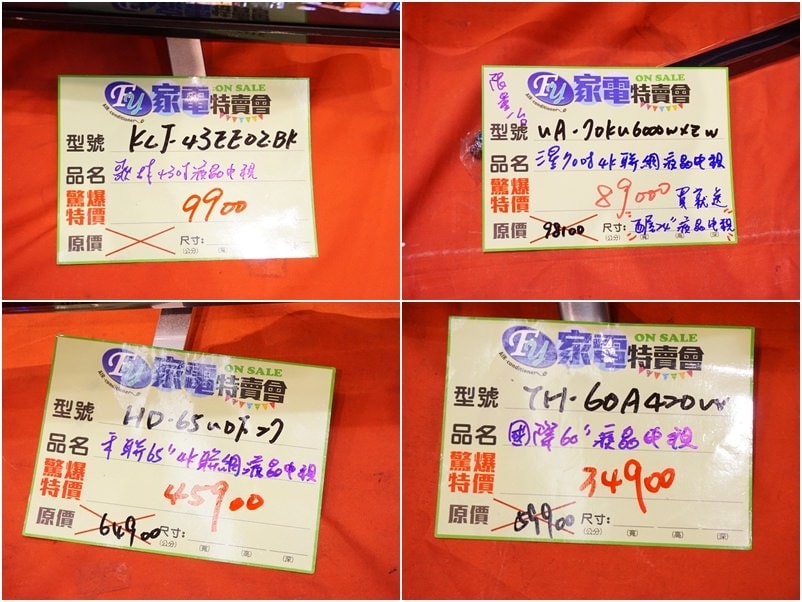 Fu 家電特賣會 ON SALE
AIR conditioner
型號 KLJ-43EE02BK
品名 歌林43吋液晶电視
驚爆特價 9900
原價 尺寸: (公分) (寬) (高) (深)
限量1台
Fu 家電特賣會 ON SALE
AIR conditioner
型號 UA-70KU6000WXZW
品名 三星70吋4K聯網液晶电視
驚爆特價 89000 買就送
原價 98100 尺寸: 24"液晶电視
(公分) (寬) (高) (深)
Fu 家電特賣會 ON SALE
AIR conditioner
型號 HD-65UDF27
品名 禾聯65"4K聯網液晶电視
驚爆特價 45900
原價 64900 尺寸: (公分) (寬) (高) (深)
Fu 家電特賣會 ON SALE
AIR conditioner
型號 TH-60A420W
品名 國際60"液晶电視
驚爆特價 34900
原價 59900 尺寸: (公分) (寬) (高) (深)